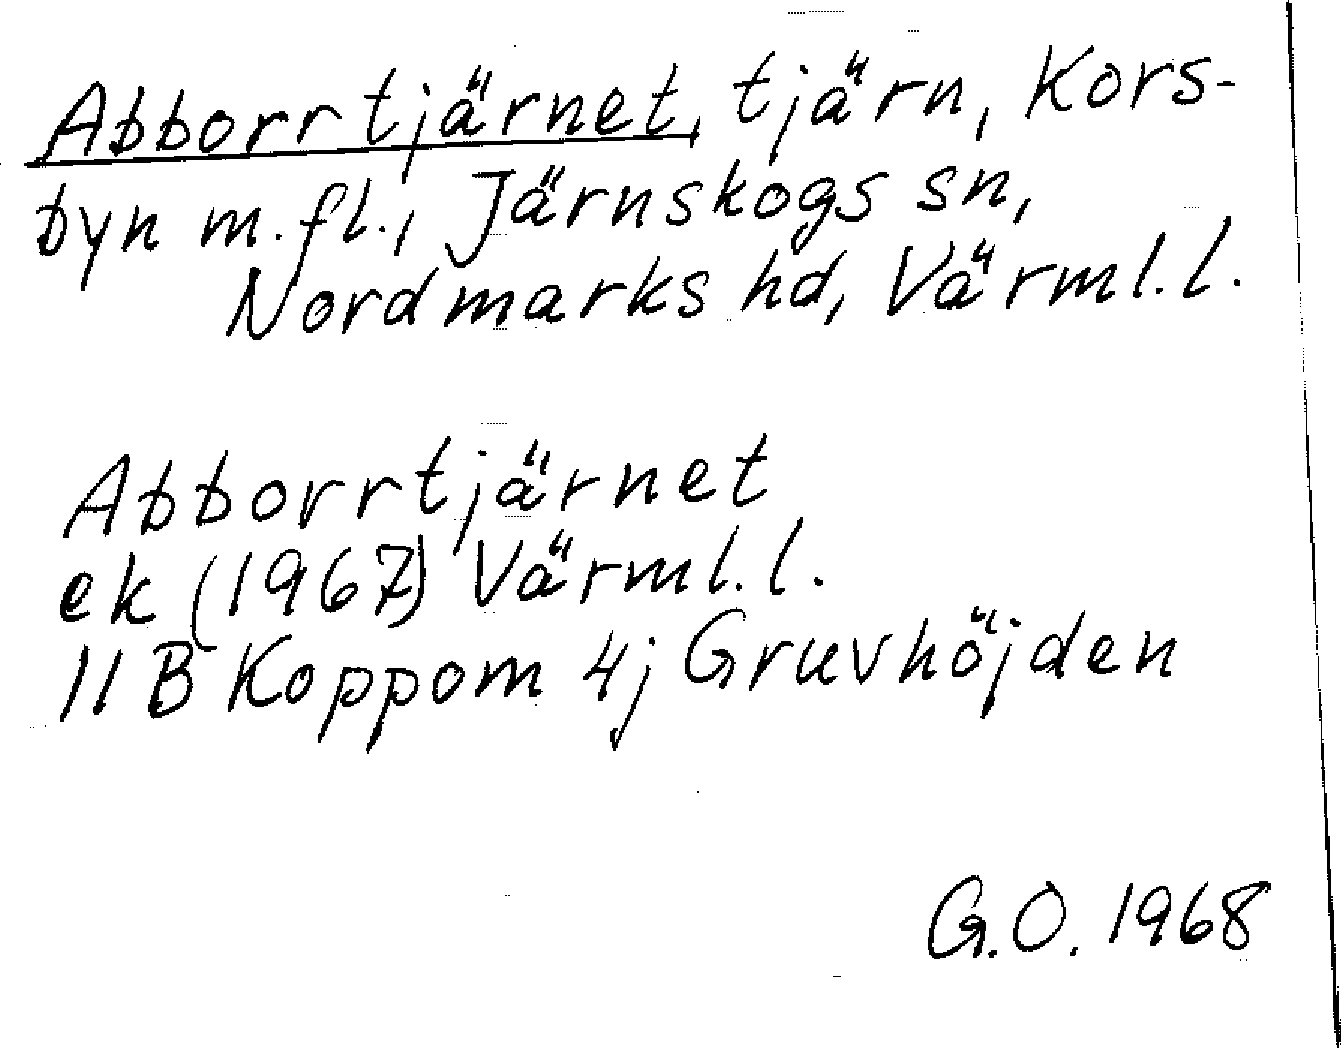 Abborrtjärnet, tjärn, Kors-
byn m.fl., Järnskogs sn,
Nordmarks hd, Värml.l.
Abborrtjärnet
ek (1967) Värml.l.
11B Koppom 4j Gruvhöjden
G.O. 1968